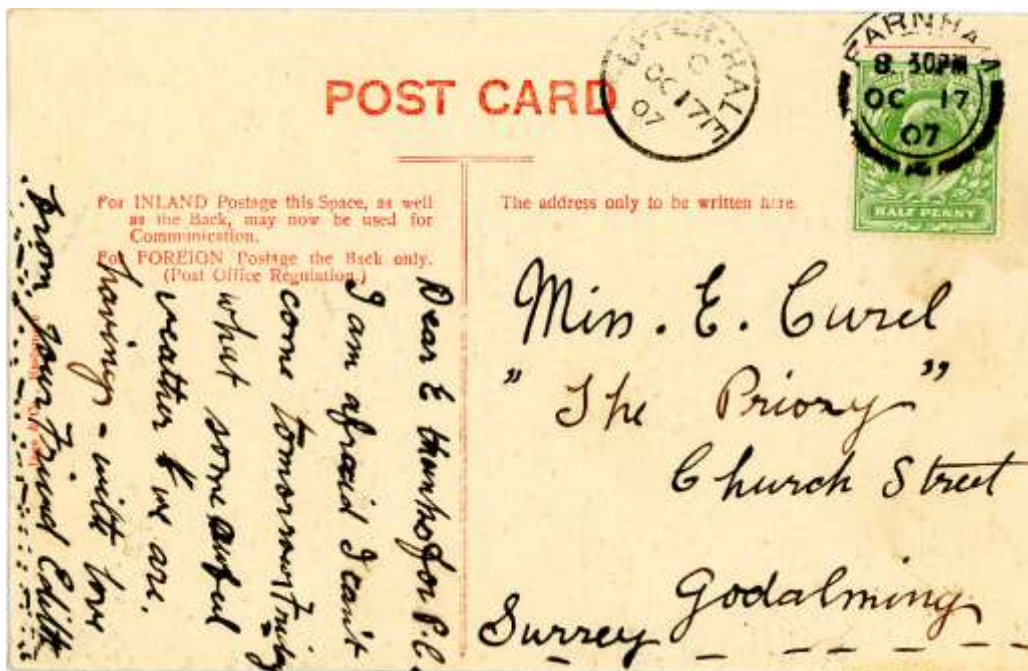 POST CARD
UPPER-HALE
C
OC 17
07
FARNHAM
8. 30PM
OC 17
07
HALF PENNY
For INLAND Postage this Space, as well
as the Back, may now be used for
Communication.
For FOREIGN Postage the Back only.
(Post Office Regulation.)
The address only to be written here.
Dear E thanks for P.C.
I am afraid I can't
come tomorrow Friday
what some awful
weather we are
having - with love
from your friend Edith
Miss. E. Curel
"The Priory"
Church Street
Godalming
Surrey